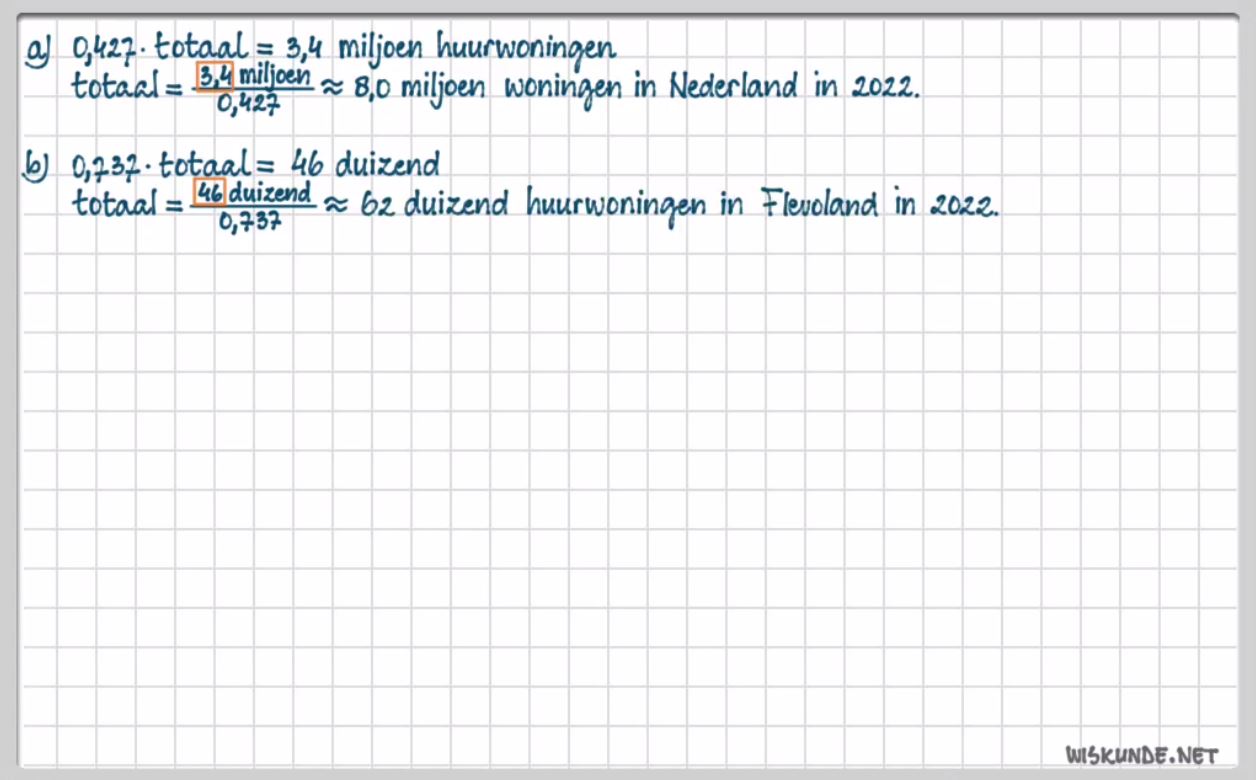 a) 0,427 · totaal = 3,4 miljoen huurwoningen
totaal = 3,4 miljoen / 0,427 ≈ 8,0 miljoen woningen in Nederland in 2022.
b) 0,737 · totaal = 46 duizend
totaal = 46 duizend / 0,737 ≈ 62 duizend huurwoningen in Flevoland in 2022.
WISKUNDE.NET